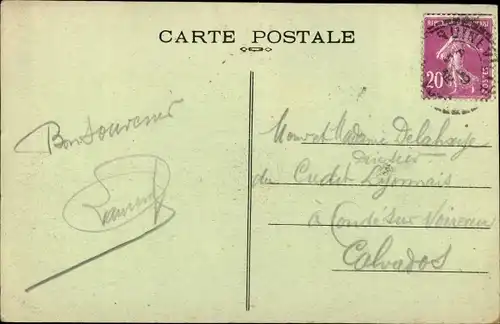 CARTE POSTALE
20
Bon Souvenir
Mr et Madame Delahaye
Directeur
du Crédit Lyonnais
à Condé sur Noireau
Calvados